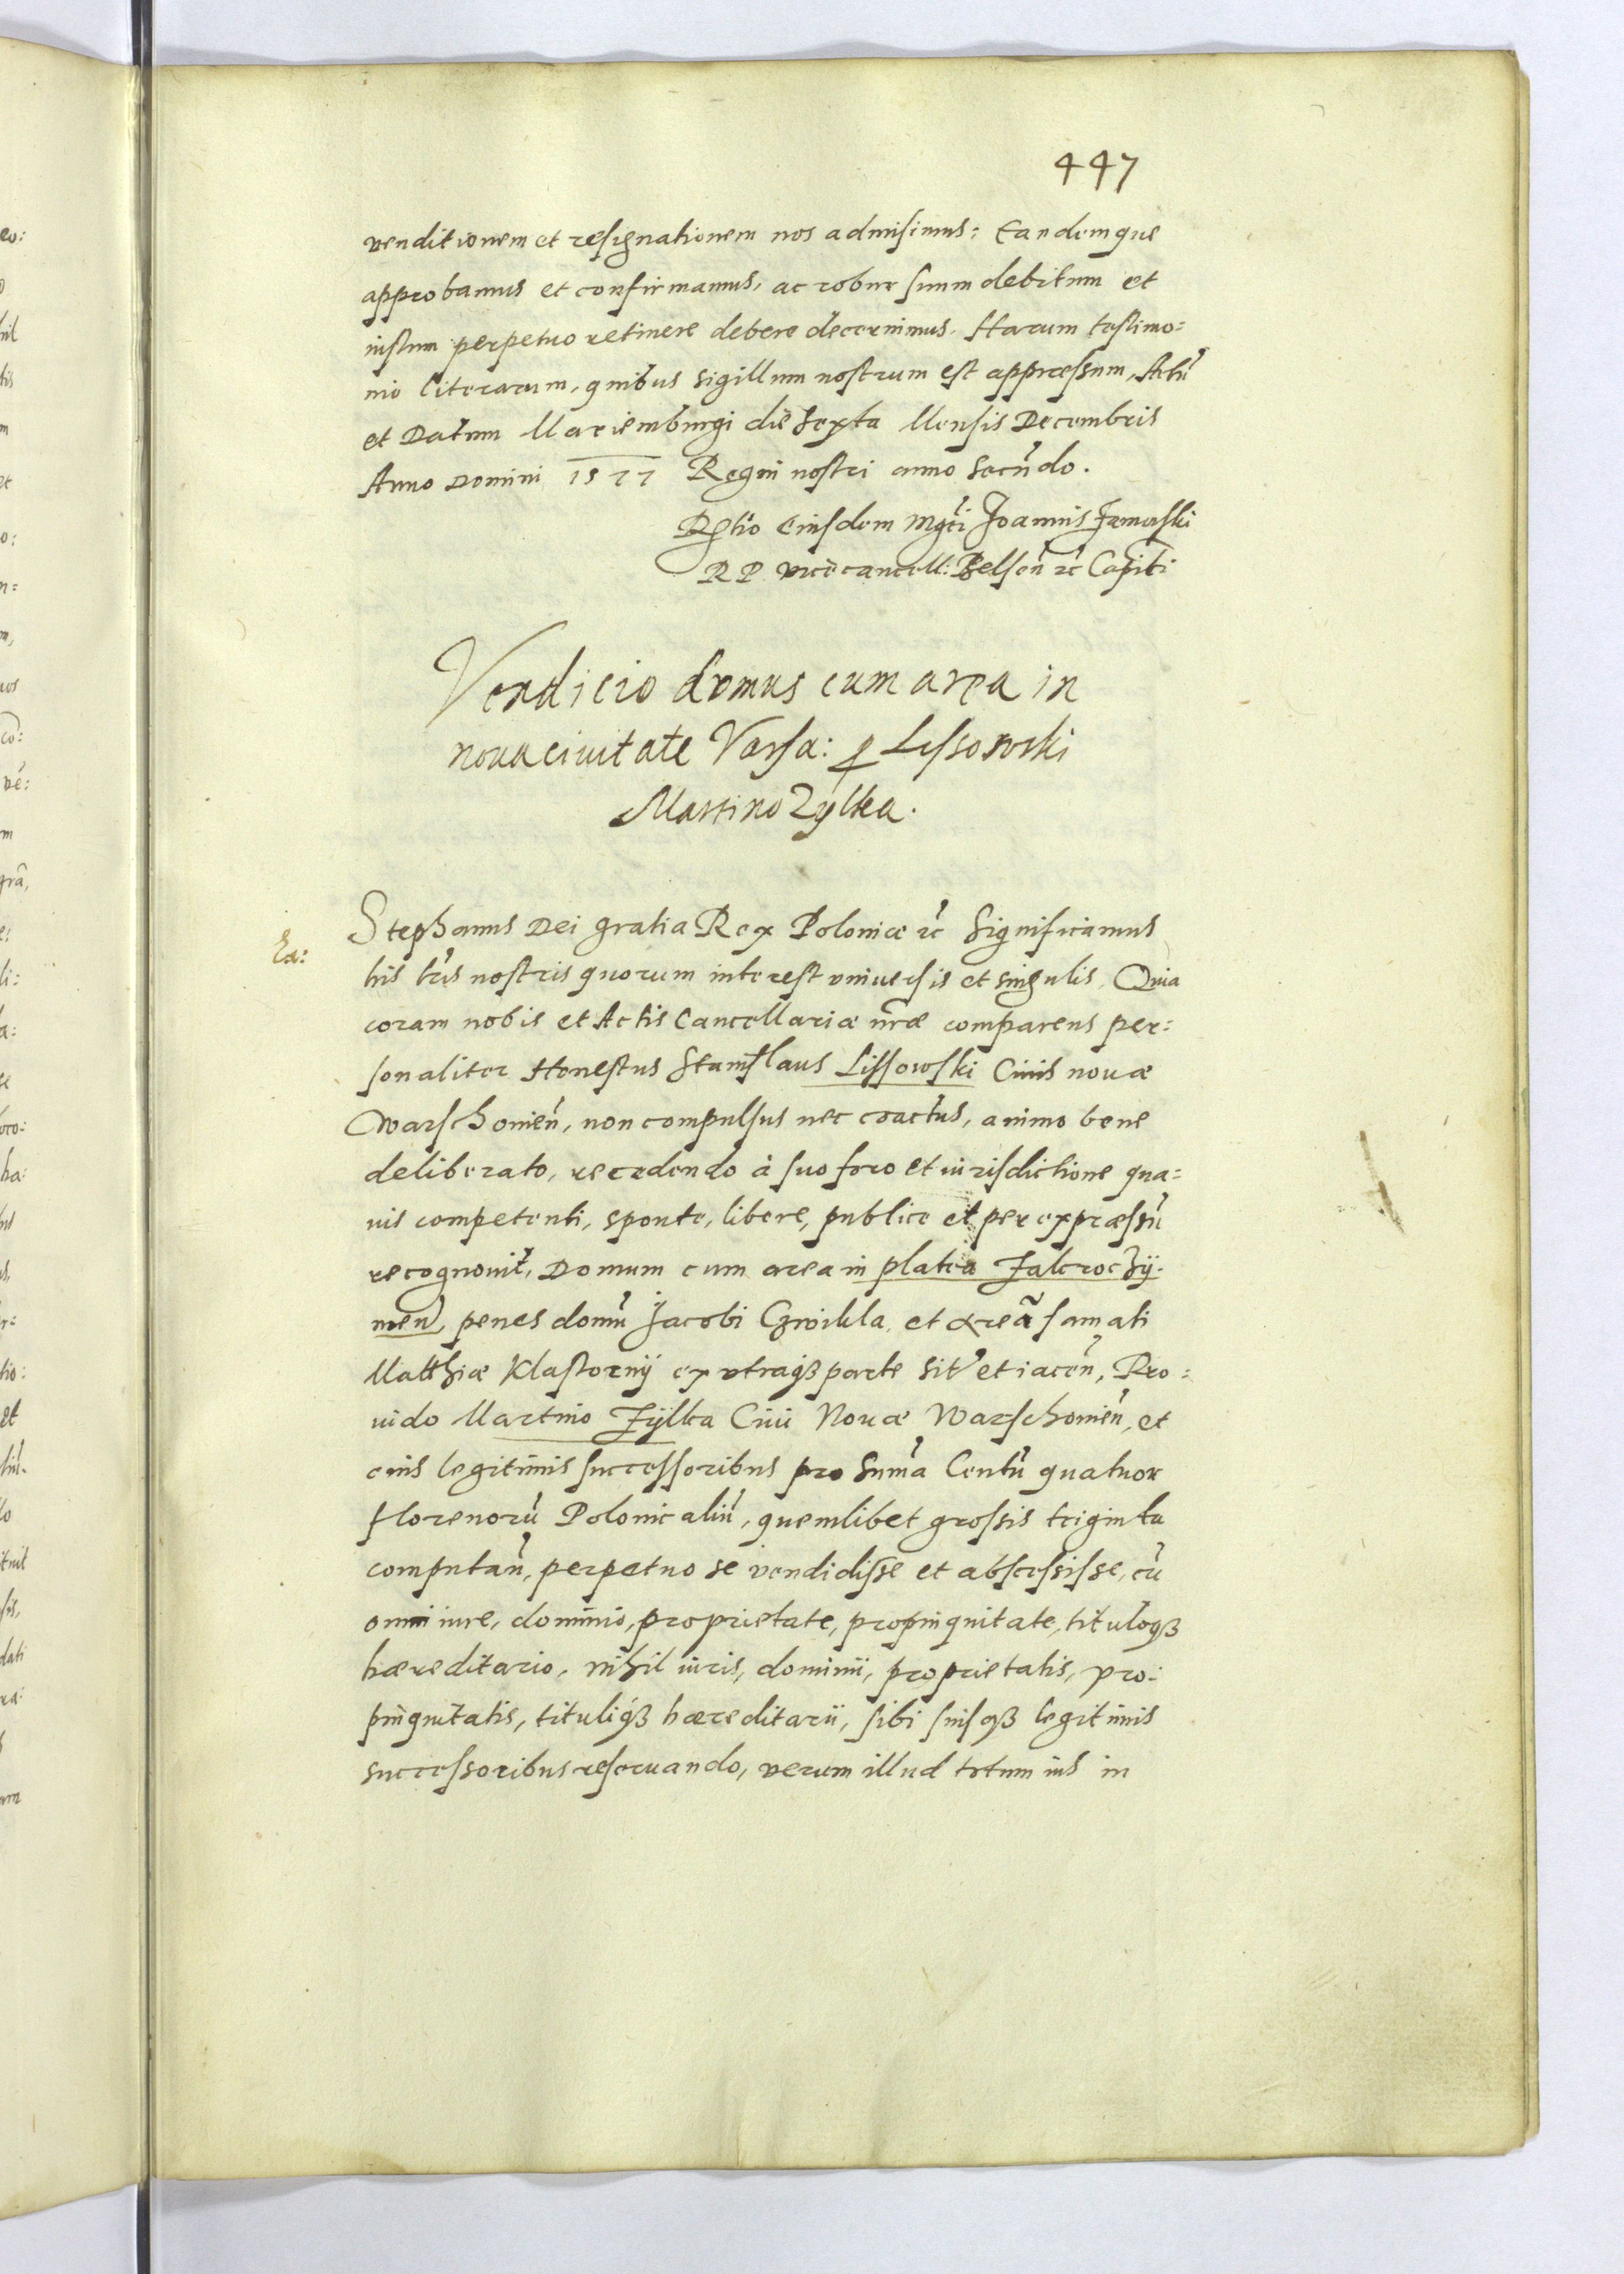 447
venditionem et resignationem nos admisimus: Eandemque
approbamus et confirmamus, ac robur suum debitum et
iustum perpetuo retinere debere decernimus. Harum testimo=
nio literarum, quibus sigillum nostrum est appressum, Actũ
et Datum Mariemburgi die Sexta Mensis Decembris
Anno Domini 1577 Regni nostri anno Secũdo.
Rẽtio Eiusdem Mgci Joannis Zamoiski
R P vicecancell: Belseñ zc Capiti
Vendicio domus cum area in
noua ciuitate Varsa: ꝑ Lissowski
Martino Zylka.
Ex:
Stephanus Dei gratia Rex Poloniæ zc Significamus
his lris nostris quorum interest vniuersis et singulis, Quia
coram nobis et Actis Cancellariæ nræ comparens per=
sonaliter Honestus Stanislaus Lissowski Ciuis nouæ
Warschouień, non compulsus nec coactus, animo bene
deliberato, recedendo à suo foro et iurisdictione qua=
uis competenti, sponte, libere, publice et per expressũ
recognouit, Domum cum area in platea Zakroczÿ=
mień, penes domũ Jacobi Czwikla, et areã famati
Matthiæ Klastornÿ ex vtraqȝ parte sit̃ et iaceñ, Pro=
uido Martino Zÿlka Ciui Nouæ Warschouień, et
eius legitimis successoribus pro Sum̃a Centũ quatuor
florenorũ Polonicaliũ, quemlibet grossis triginta
computañ, perpetuo se vendidisse et abscessisse, cũ
omni iure, dominio, proprietate, propinquitate, tituloqȝ
hæreditario, nihil iuris, dominii, proprietatis, pro=
pinquitatis, tituliqȝ hæreditarii, sibi suisqȝ legitimis
successoribus reseruando, verum illud totum ius in